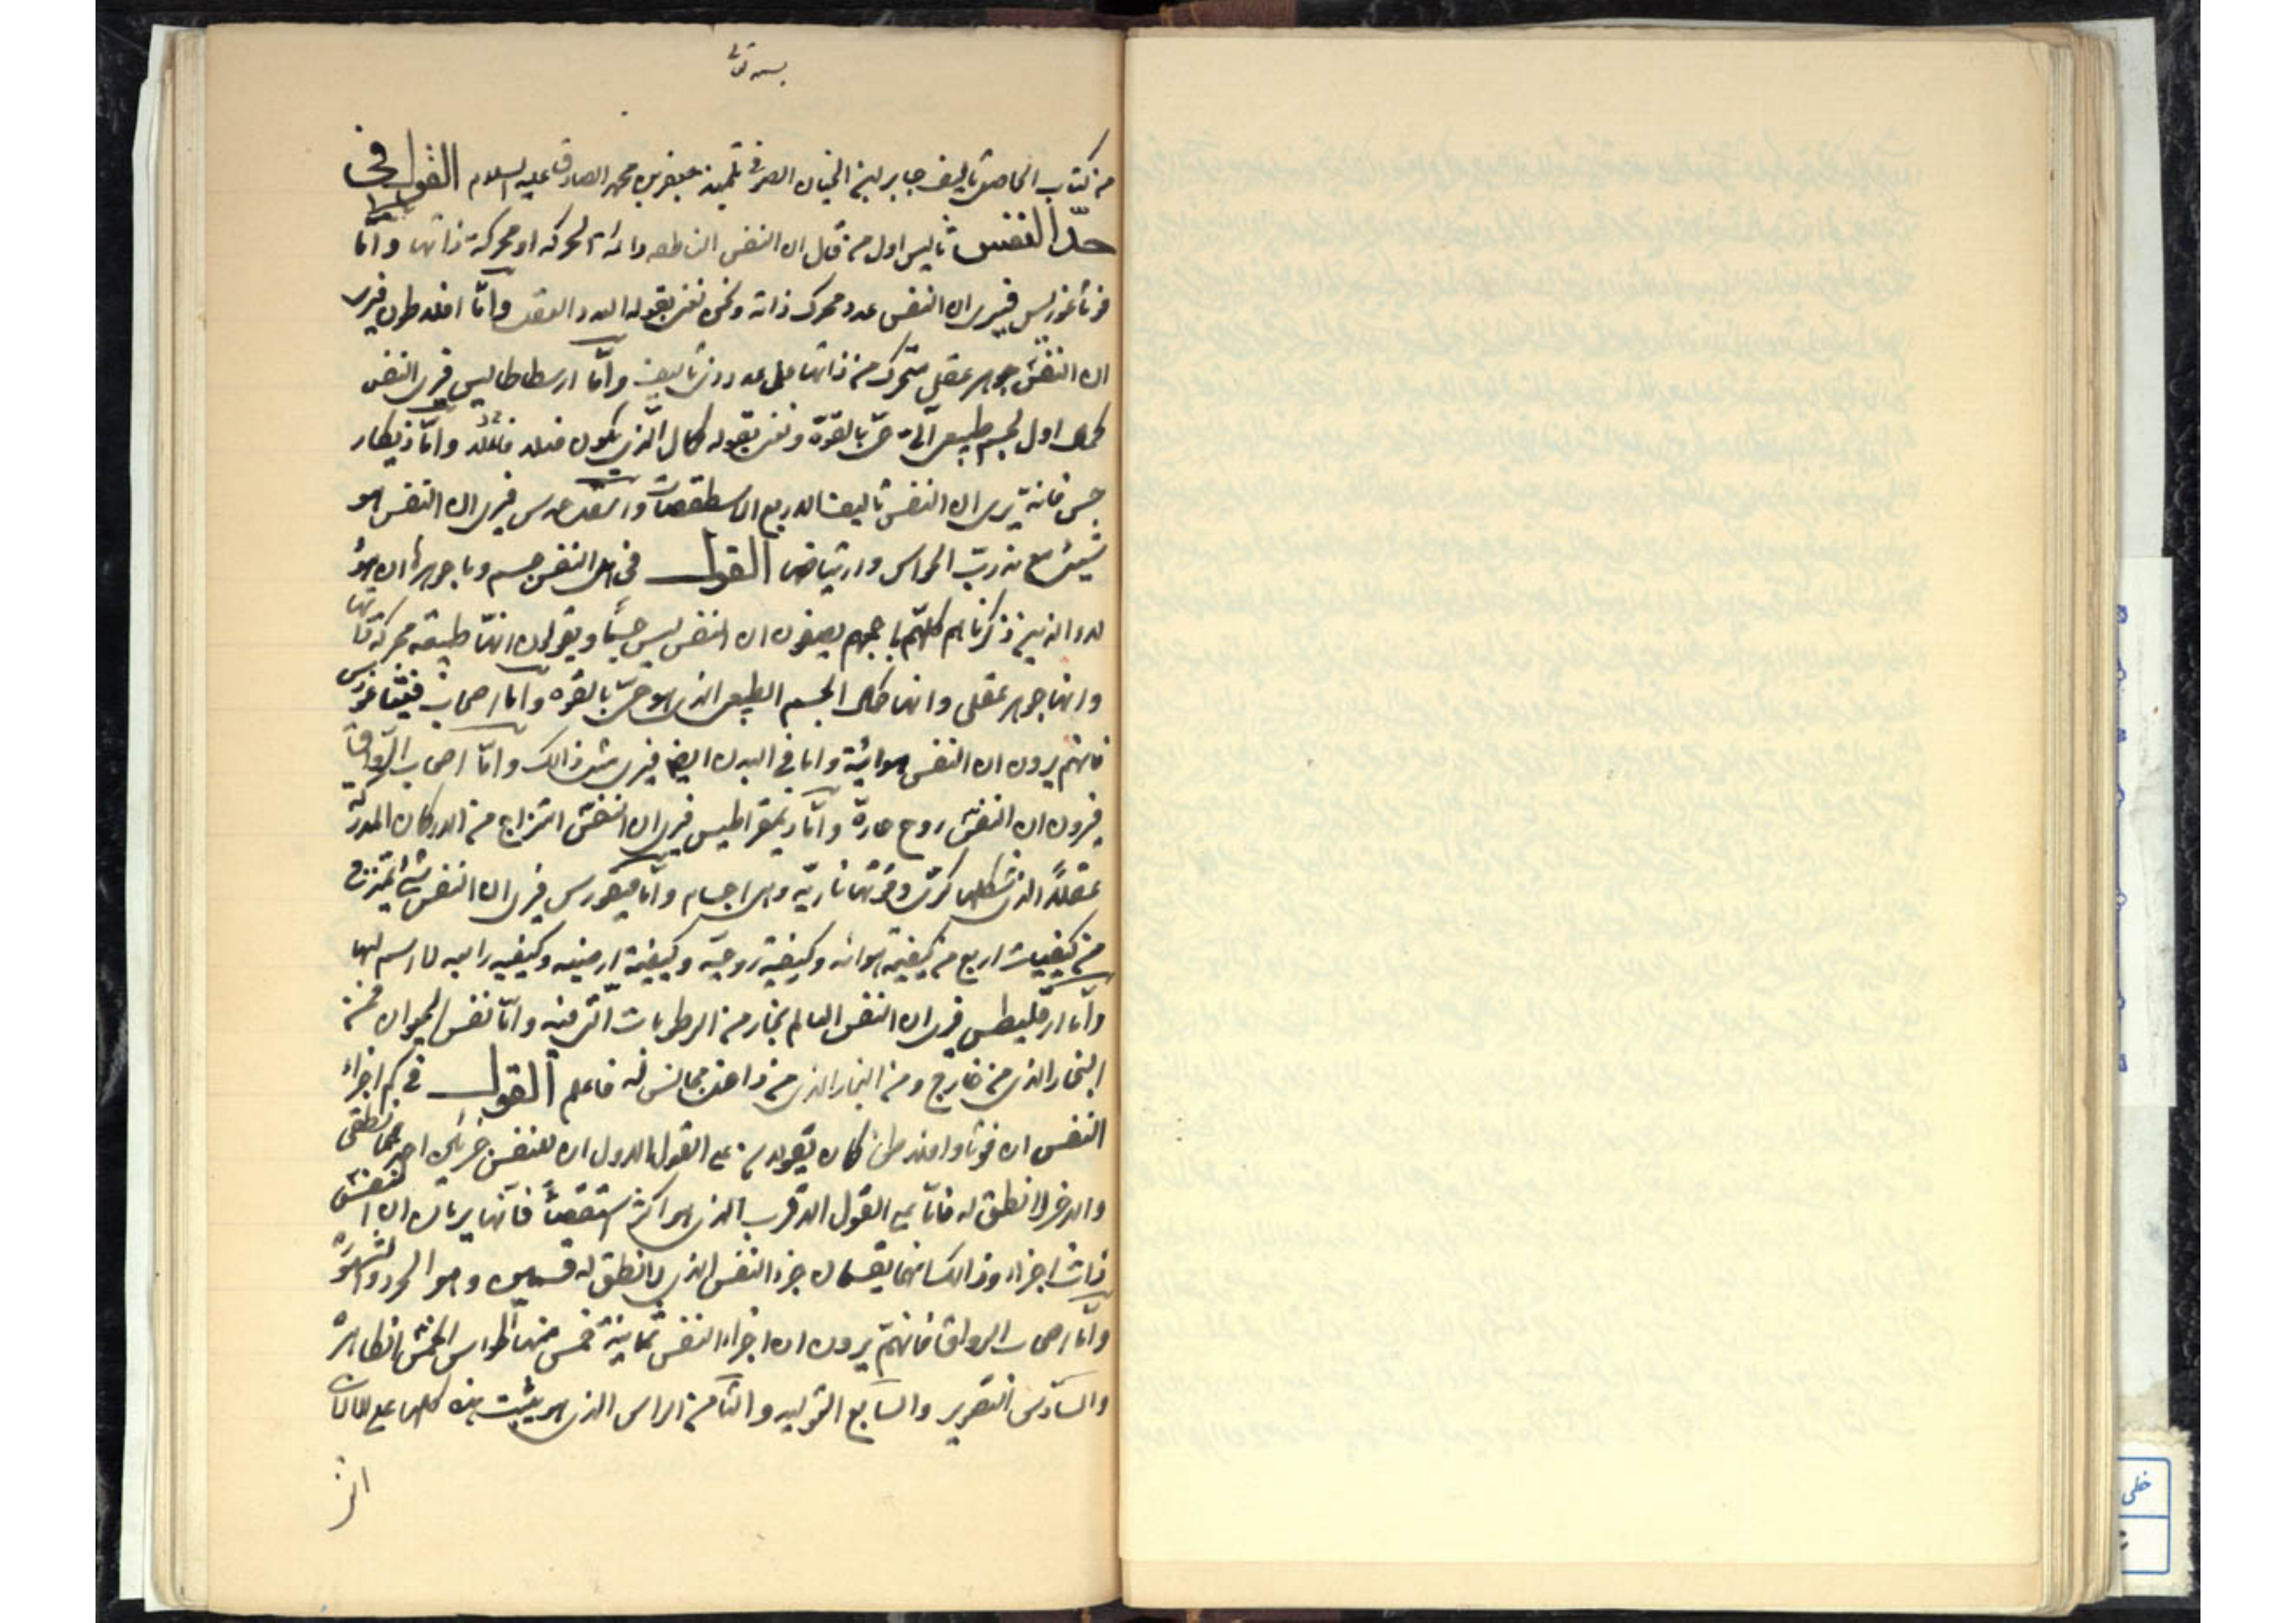 بسمه تعالی
من كتاب الخاصة تأليف جابر بن الحيان الصوفى تلميذ جعفر بن محمد الصادق عليه السلام القول فى
حدّ النفس ثاليس اول من قال ان النفس الناطقه دائمة الحركه او محركة ذاتها وامّا
فوثاغورس فيرى ان النفس عدد محرك ذاته ونحن نعنى بقوله العدد العقل وامّا افلاطون فيرى
ان النفس جوهر عقلى متحرك من ذاتها على عدد ذى تأليف وامّا ارسطاطاليس فيرى النفس
كمال اول لجسم طبيعى آلى حىّ بالقوّة ونعنى بقوله كمال الّذى يكون وامّا ذيكار
جس فانه يرى ان النفس تأليف الاربع الاسطقصات فيرى ان النفس هو
شيئ مع تدرب الحواس وارتياض القول فى هل النفس جسم وما جوهرها ان هؤ
لاء الذين ذكرناهم كلهم باجمعهم يضعون ان النفس ليس جسماً ويقولون انها طبيعة محركة ذاتها
وانها جوهر عقلى وانها كمال الجسم الطبيعى الذى هو حىّ بالقوه وامّا اصحاب فيثاغورس
فانهم يرون ان النفس هوائية واما فى البدن ايضا فيرى مثل ذالك وامّا اصحاب الرواق
فيرون ان النفس روح حارة وامّا ديمقراطيس فيرى ان النفس امتزاج من الاركان المدركة
عقلاً الذى شكلها كرى وقوتها ناريّه وهى اجسام وامّا فيقورس فيرى ان النفس شئ امتزج
من كيفيات اربع من كيفية هوائه وكيفية روحيّه وكيفية ارضيه وكيفيه رابعه لا اسم لها
وامّا ارقليطس فيرى ان النفس العالم بخار من الرطوبات الّتى فيه وامّا نفس الحيوان فمن
البخار الذى من خارج ومن البخار الذى من داخل مجانس له فاعلم القول فى كم اجزاء
النفس ان فوثا وافلاطن كان يقولان على القول الاول ان للنفس جزئين احدهما نطقى
والاخر لا نطق له فامّا على القول الاقرب الذى هو اكثر استقصاً فانهما يريان ان النفس
ثلث اجزاء وذالك انهما يقسمان جزء النفس الذى لا نطق له قسمين وهو الحرد والشهوة
وامّا اصحاب الرواق فانهم يرون ان اجزاء النفس ثمانية خمس منها الحواس الخمس الظاهره
والسادس التصوير والسابع التوليد والثامن الراس الذى هو يثبت هذه كلها على الالات
الذى